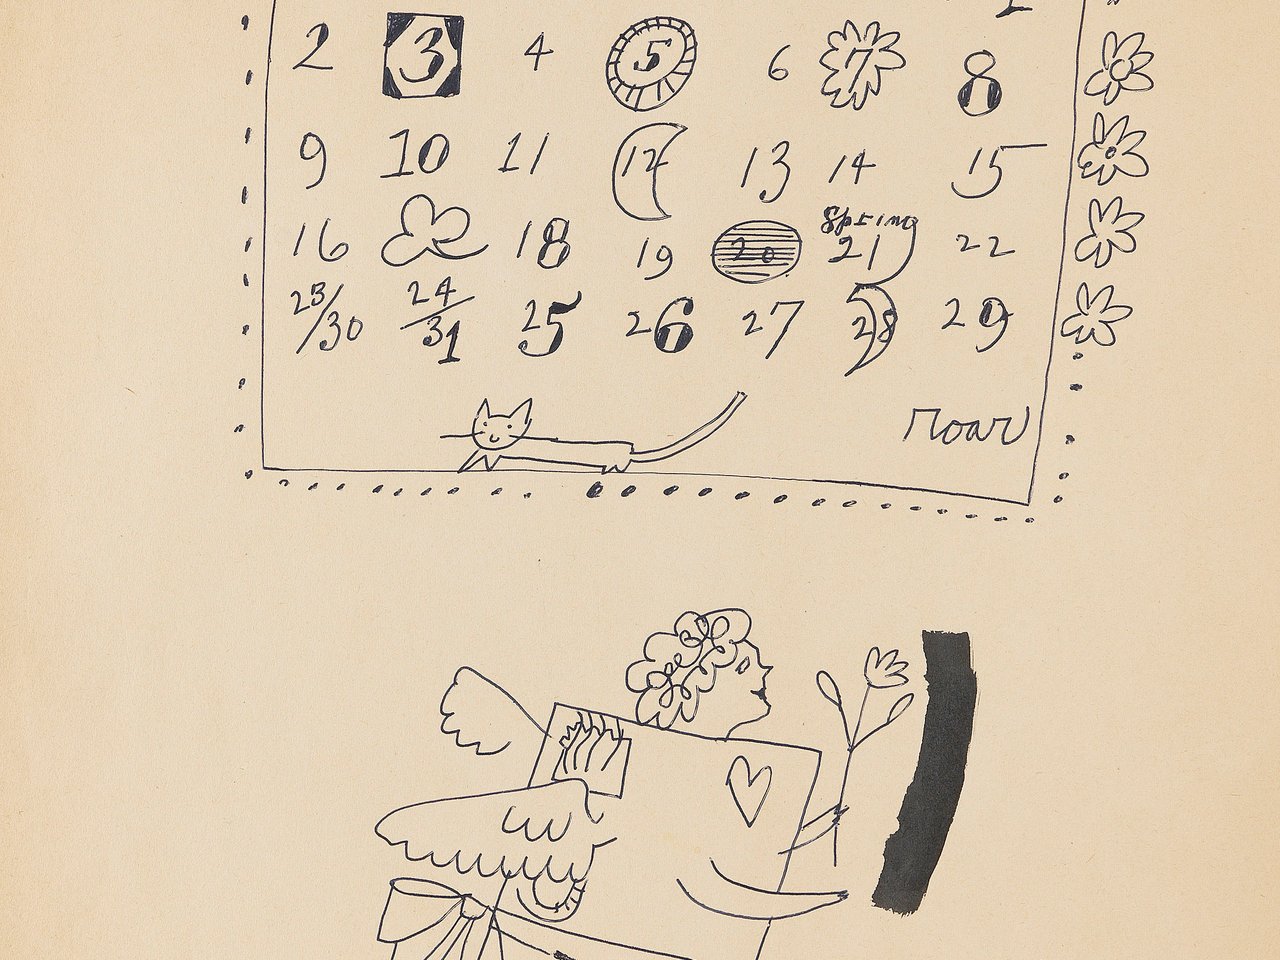 1
2 3 4 5 6 7 8
9 10 11 12 13 14 15
16 18 19 20 Spring 21 22
23/30 24/31 25 26 27 28 29
roar